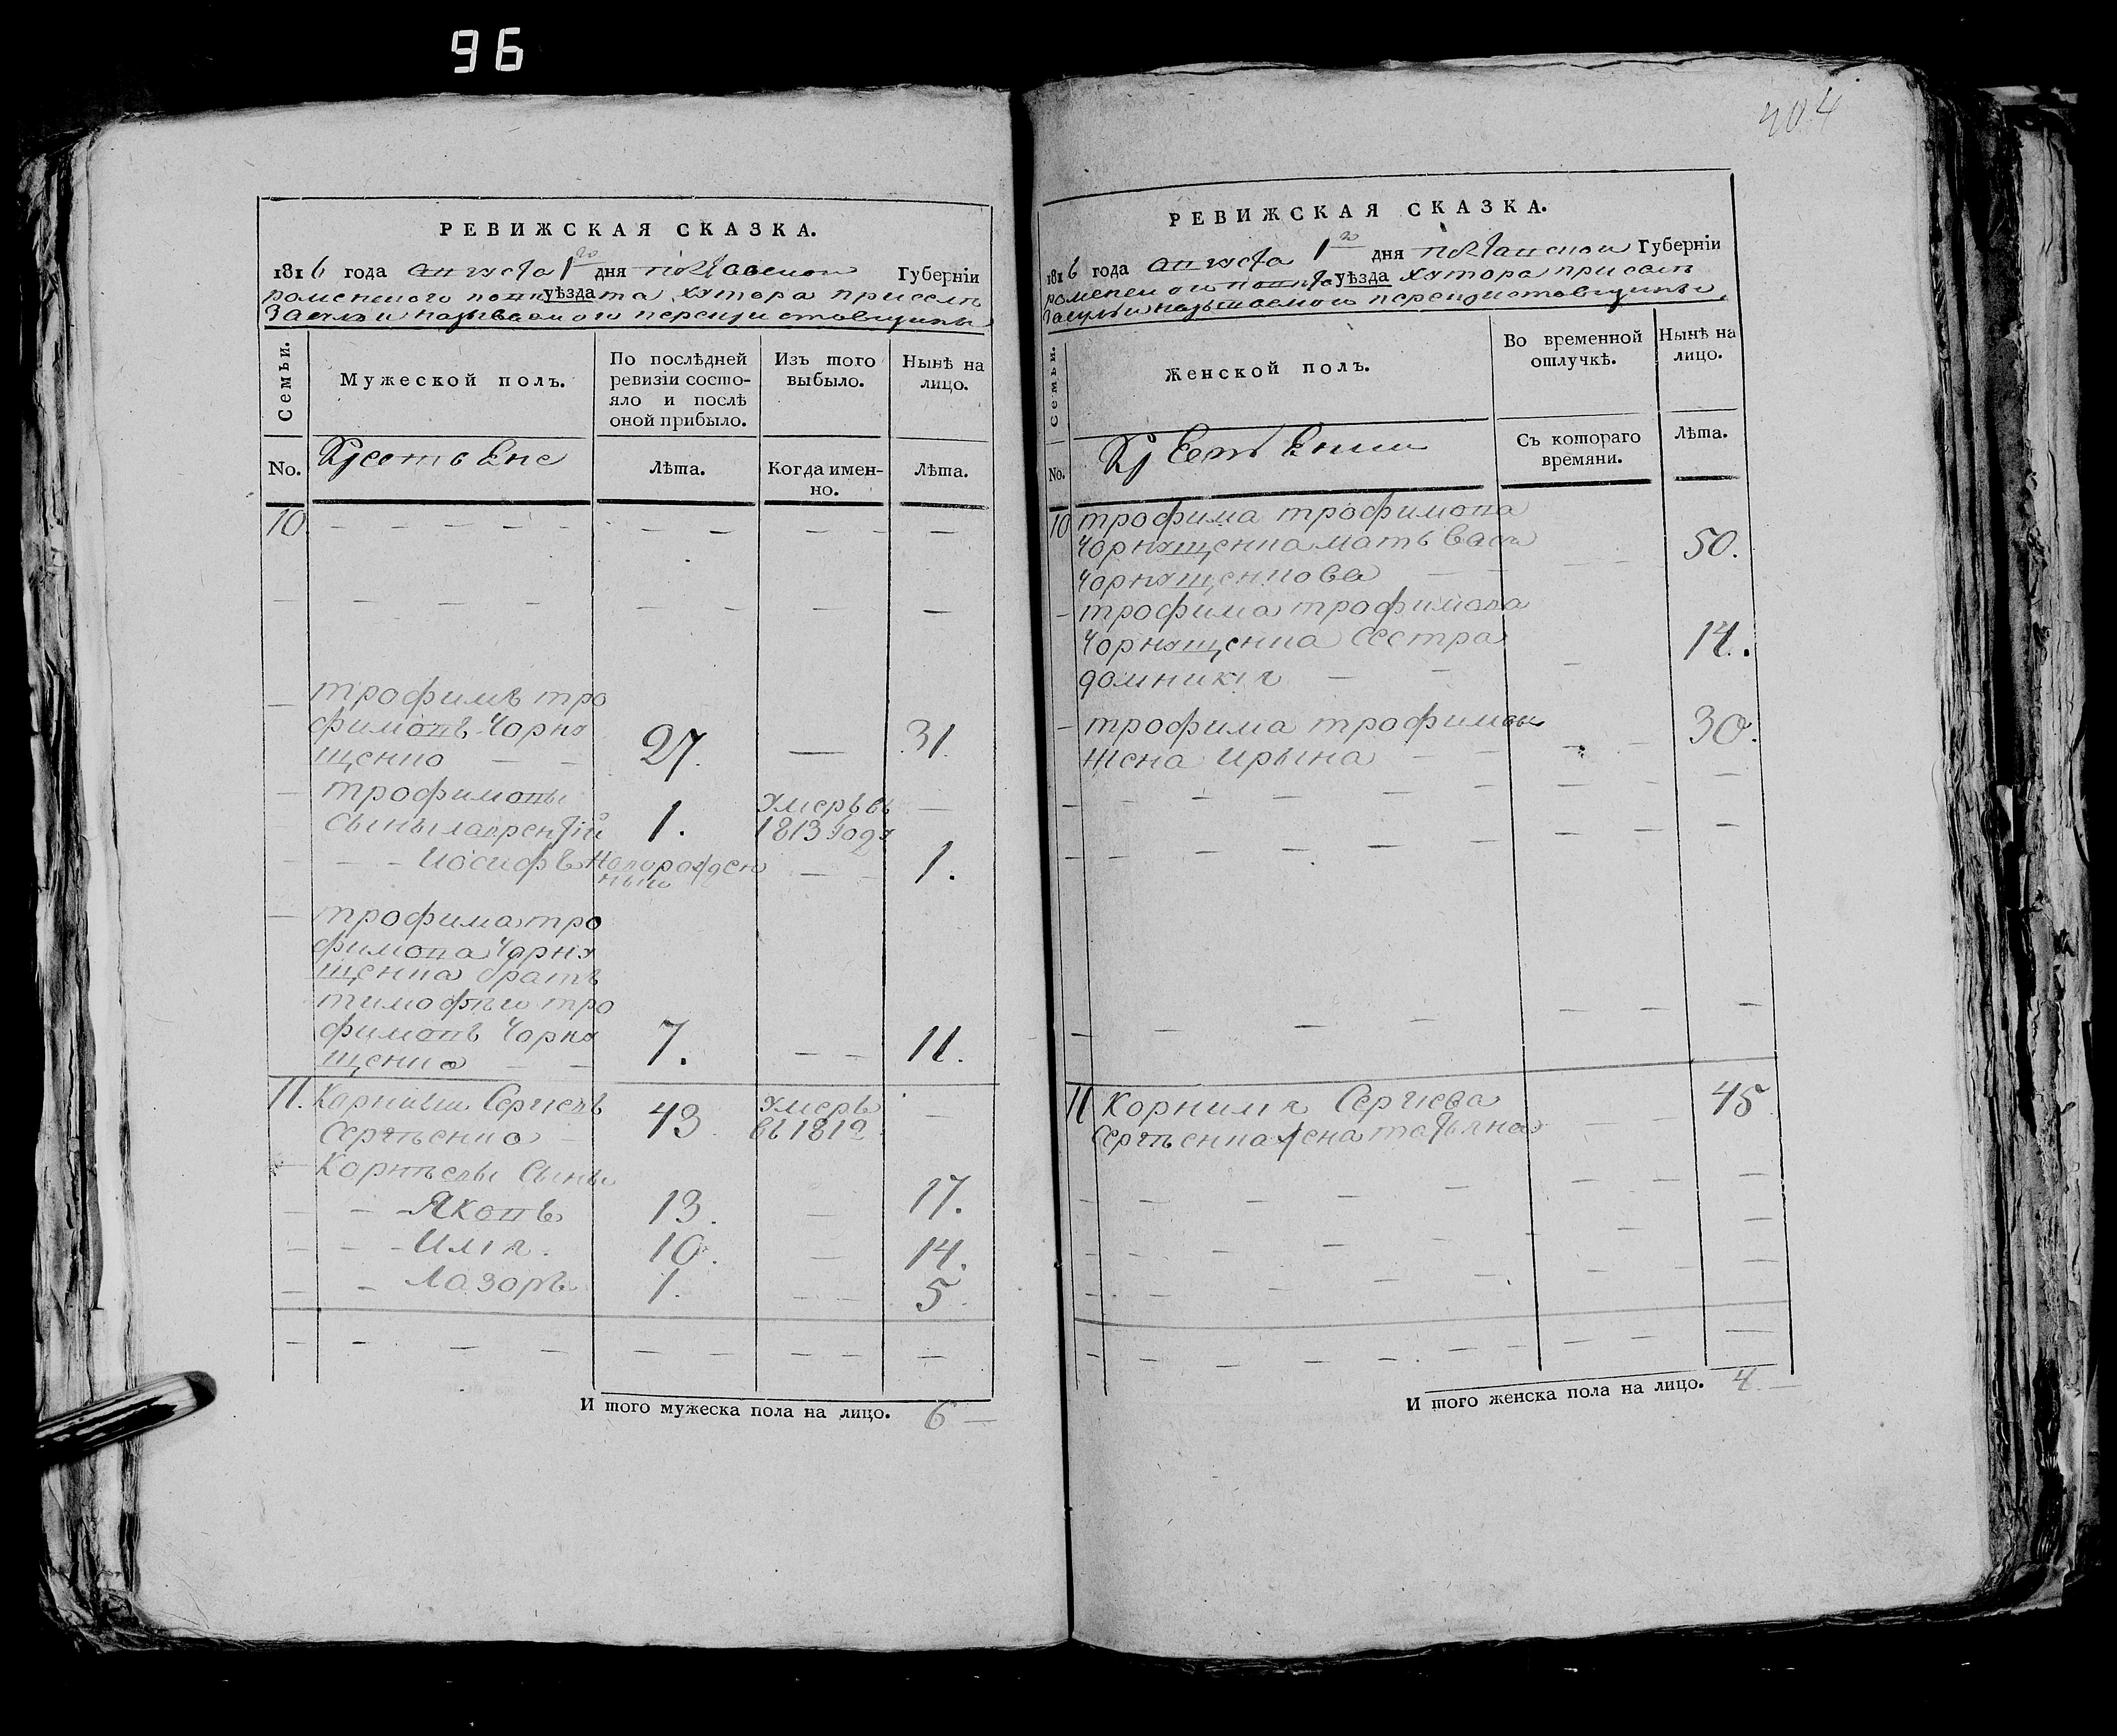 96
404
РЕВИЖСКАЯ СКАЗКА.
1816 года августа 1го дня полтавской Губерніи
роменского повѣта уѣзда хутора присели
засулья називаемого
Семьи.
Мужеской полъ.
По послѣдней ревизіи состояло и послѣ оной прибыло.
Изъ того выбыло.
Нынѣ на лицо.
No.
Крестьяне
Лѣта.
Когда именно.
Лѣта.
10.
трофимъ тро
фимовъ Чорну
щенко 27. 31.
трофимовы
сыны лаврентій 1. умеръ въ 1813 году
Иосифъ новорожденный 1.
трофима тро
фимова Чорну
щенка братъ
тимофѣи тро
фимовъ Чорну
щенко 7. 11.
11. Корнилии Сергѣевъ 43 умеръ
Сергѣенко въ 1812
Корнѣевы Сыны
Яковъ 13. 17.
Илія. 10. 14.
Лазоръ 1. 5.
И того мужеска пола на лицо. 6
РЕВИЖСКАЯ СКАЗКА.
1816 года августа 1го дня полтавской Губерніи
роменского повѣта уѣзда хутора присели
засулья називаемого
Семьи.
Женской полъ.
Во временной отлучкѣ.
Нынѣ на лицо.
No.
Крестьянки
Съ котораго времяни.
Лѣта.
10 трофима трофимова
Чорнущенка мать 50.
Чорнущенкова
трофима трофимова
Чорнущенка сестра 14.
домникія
трофима трофимовы 30.
жена Ирына
11 Корнилія Сергіева 45
Сергѣенка жена татьяна
И того женска пола на лицо. 4.